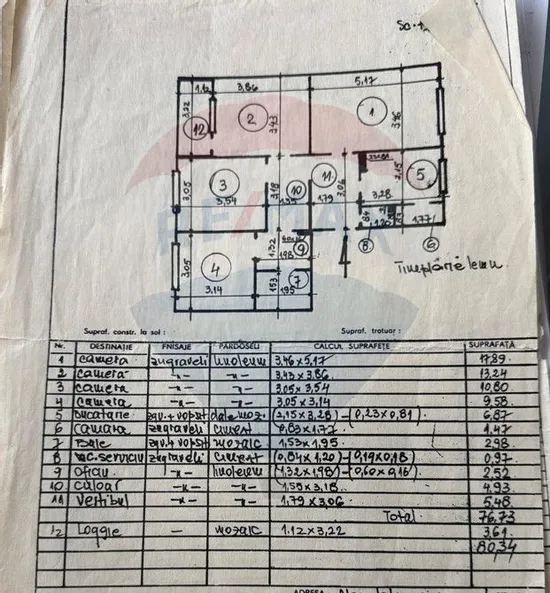 1,12
3,86
5,17
3,22
12
2
3,43
1
5
2,15
3
3,54
3,18
10
1,35
11
1,79
3,06
3,28
1,20
1,77
8
6
RE/MAX
4
3,05
3,14
1,32
1,98
9
7
1,53
1,95
Tâmplărie lemn
Supraf. constr. la sol :
Supraf. trotuar :
Nr. DESTINAȚIE FINISAJE PARDOSELI CALCUL SUPRAFEȚE SUPRAFAȚĂ
1 camera zugraveli linoleum 3,46 x 5,17 17,89
2 camera -"- -"- 3,43 x 3,86 13,24
3 camera -"- -"- 3,05 x 3,54 10,80
4 camera -"- -"- 3,05 x 3,14 9,58
5 bucatarie zgv.+vopsit dale moz. (2,15 x 3,28) - (0,23 x 0,81) 6,87
6 camara zugraveli ciment 0,83 x 1,77 1,47
7 Baie zgv.+vopsit mozaic 1,53 x 1,95 2,98
8 w.c. serviciu zugraveli ciment (0,84 x 1,20) - (0,19 x 0,18) 0,97
9 Oficiu -"- linoleum (1,32 x 1,98) - (0,60 x 0,16) 2,52
10 culoar -"- -"- 1,55 x 3,18 4,93
11 Vestibul -"- -"- 1,79 x 3,06 5,48
Total 76,73
12 Loggie - mozaic 1.12 x 3,22 3,61
80,34